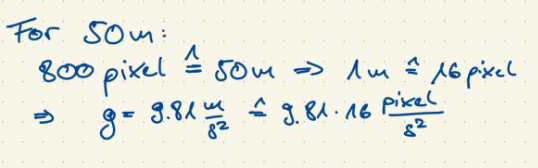 For 50m:
800 pixel ≙ 50m => 1m ≙ 16 pixel
=> g = 9.81 m/s² ≙ 9.81 · 16 pixel/s²